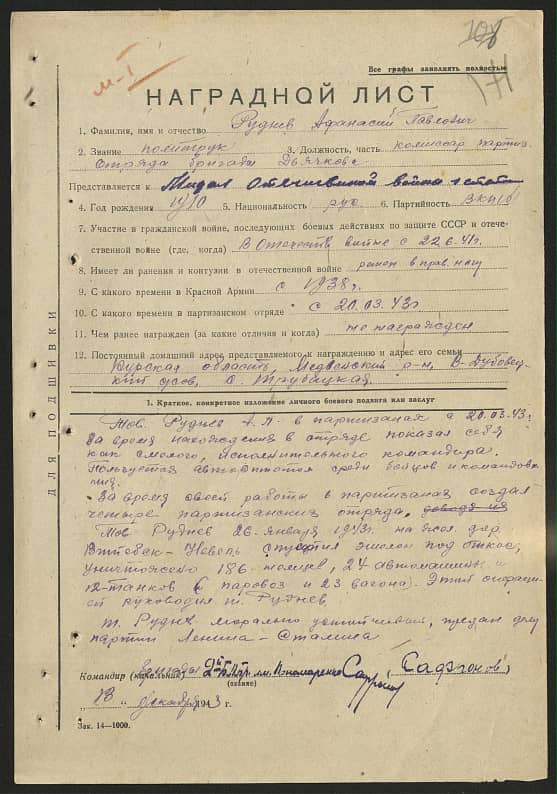 Все графы заполнять полностью
м-I
НАГРАДНОЙ ЛИСТ
1. Фамилия, имя и отчество Руднев Афанасий Павлович
2. Звание политрук 3. Должность, часть комиссар партиз.
отряда бригада Дьячкова
Представляется к Медал Отечественой война 1 степ
4. Год рождения 1910 5. Национальность рус. 6. Партийность ВКП/б
7. Участие в гражданской войне, последующих боевых действиях по защите СССР и отече-
ственной войне (где, когда) В Отечеств войне с 22.6.41г.
8. Имеет ли ранения и контузии в отечественной войне ранен в прав. ногу
9. С какого времени в Красной Армии с 1938г.
10. С какого времени в партизанском отряде с 20.03.43г
11. Чем ранее награжден (за какие отличия и когда) не награжден
12. Постоянный домашний адрес представляемого к награждению и адрес его семьи
Курская область, Медвенский р-н, В-Дубовец-
кий с/сов, с. Трубацкая.
ДЛЯ ПОДШИВКИ
I. Краткое, конкретное изложение личного боевого подвига или заслуг
Тов. Руднев А.П. в партизанах с 20.03.43г.
За время нахождения в отряде показал себя
как смелого, исполнительного командира.
Пользуется авторитетом среди бойцов и командова-
ния.
За время своей работы в партизанах создал
четыре партизанских отряда,
Тов Руднев 26-января 1943г. на жел. дор
Витебск-Невель спустил эшелон под откос,
уничтожено 186-немцев, 24 автомашины и
12-танков (паровоз и 23 вагона). Этой операци-
ей руководил т. Руднев.
т. Руднев морально устойчивый, предан делу
партии Ленина-Сталина
Командир (начальник) бригады им. Пономаренко (Сафронов)
(звание)
„18„ декабря 1943 г.
Зак. 14—1000.